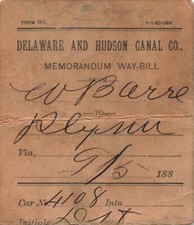 DELAWARE AND HUDSON CANAL CO.,
MEMORANDUM WAY-BILL
W Barre
TO
Plym
Via, 9/5 188
Car No 4108 Into
Initials D&H